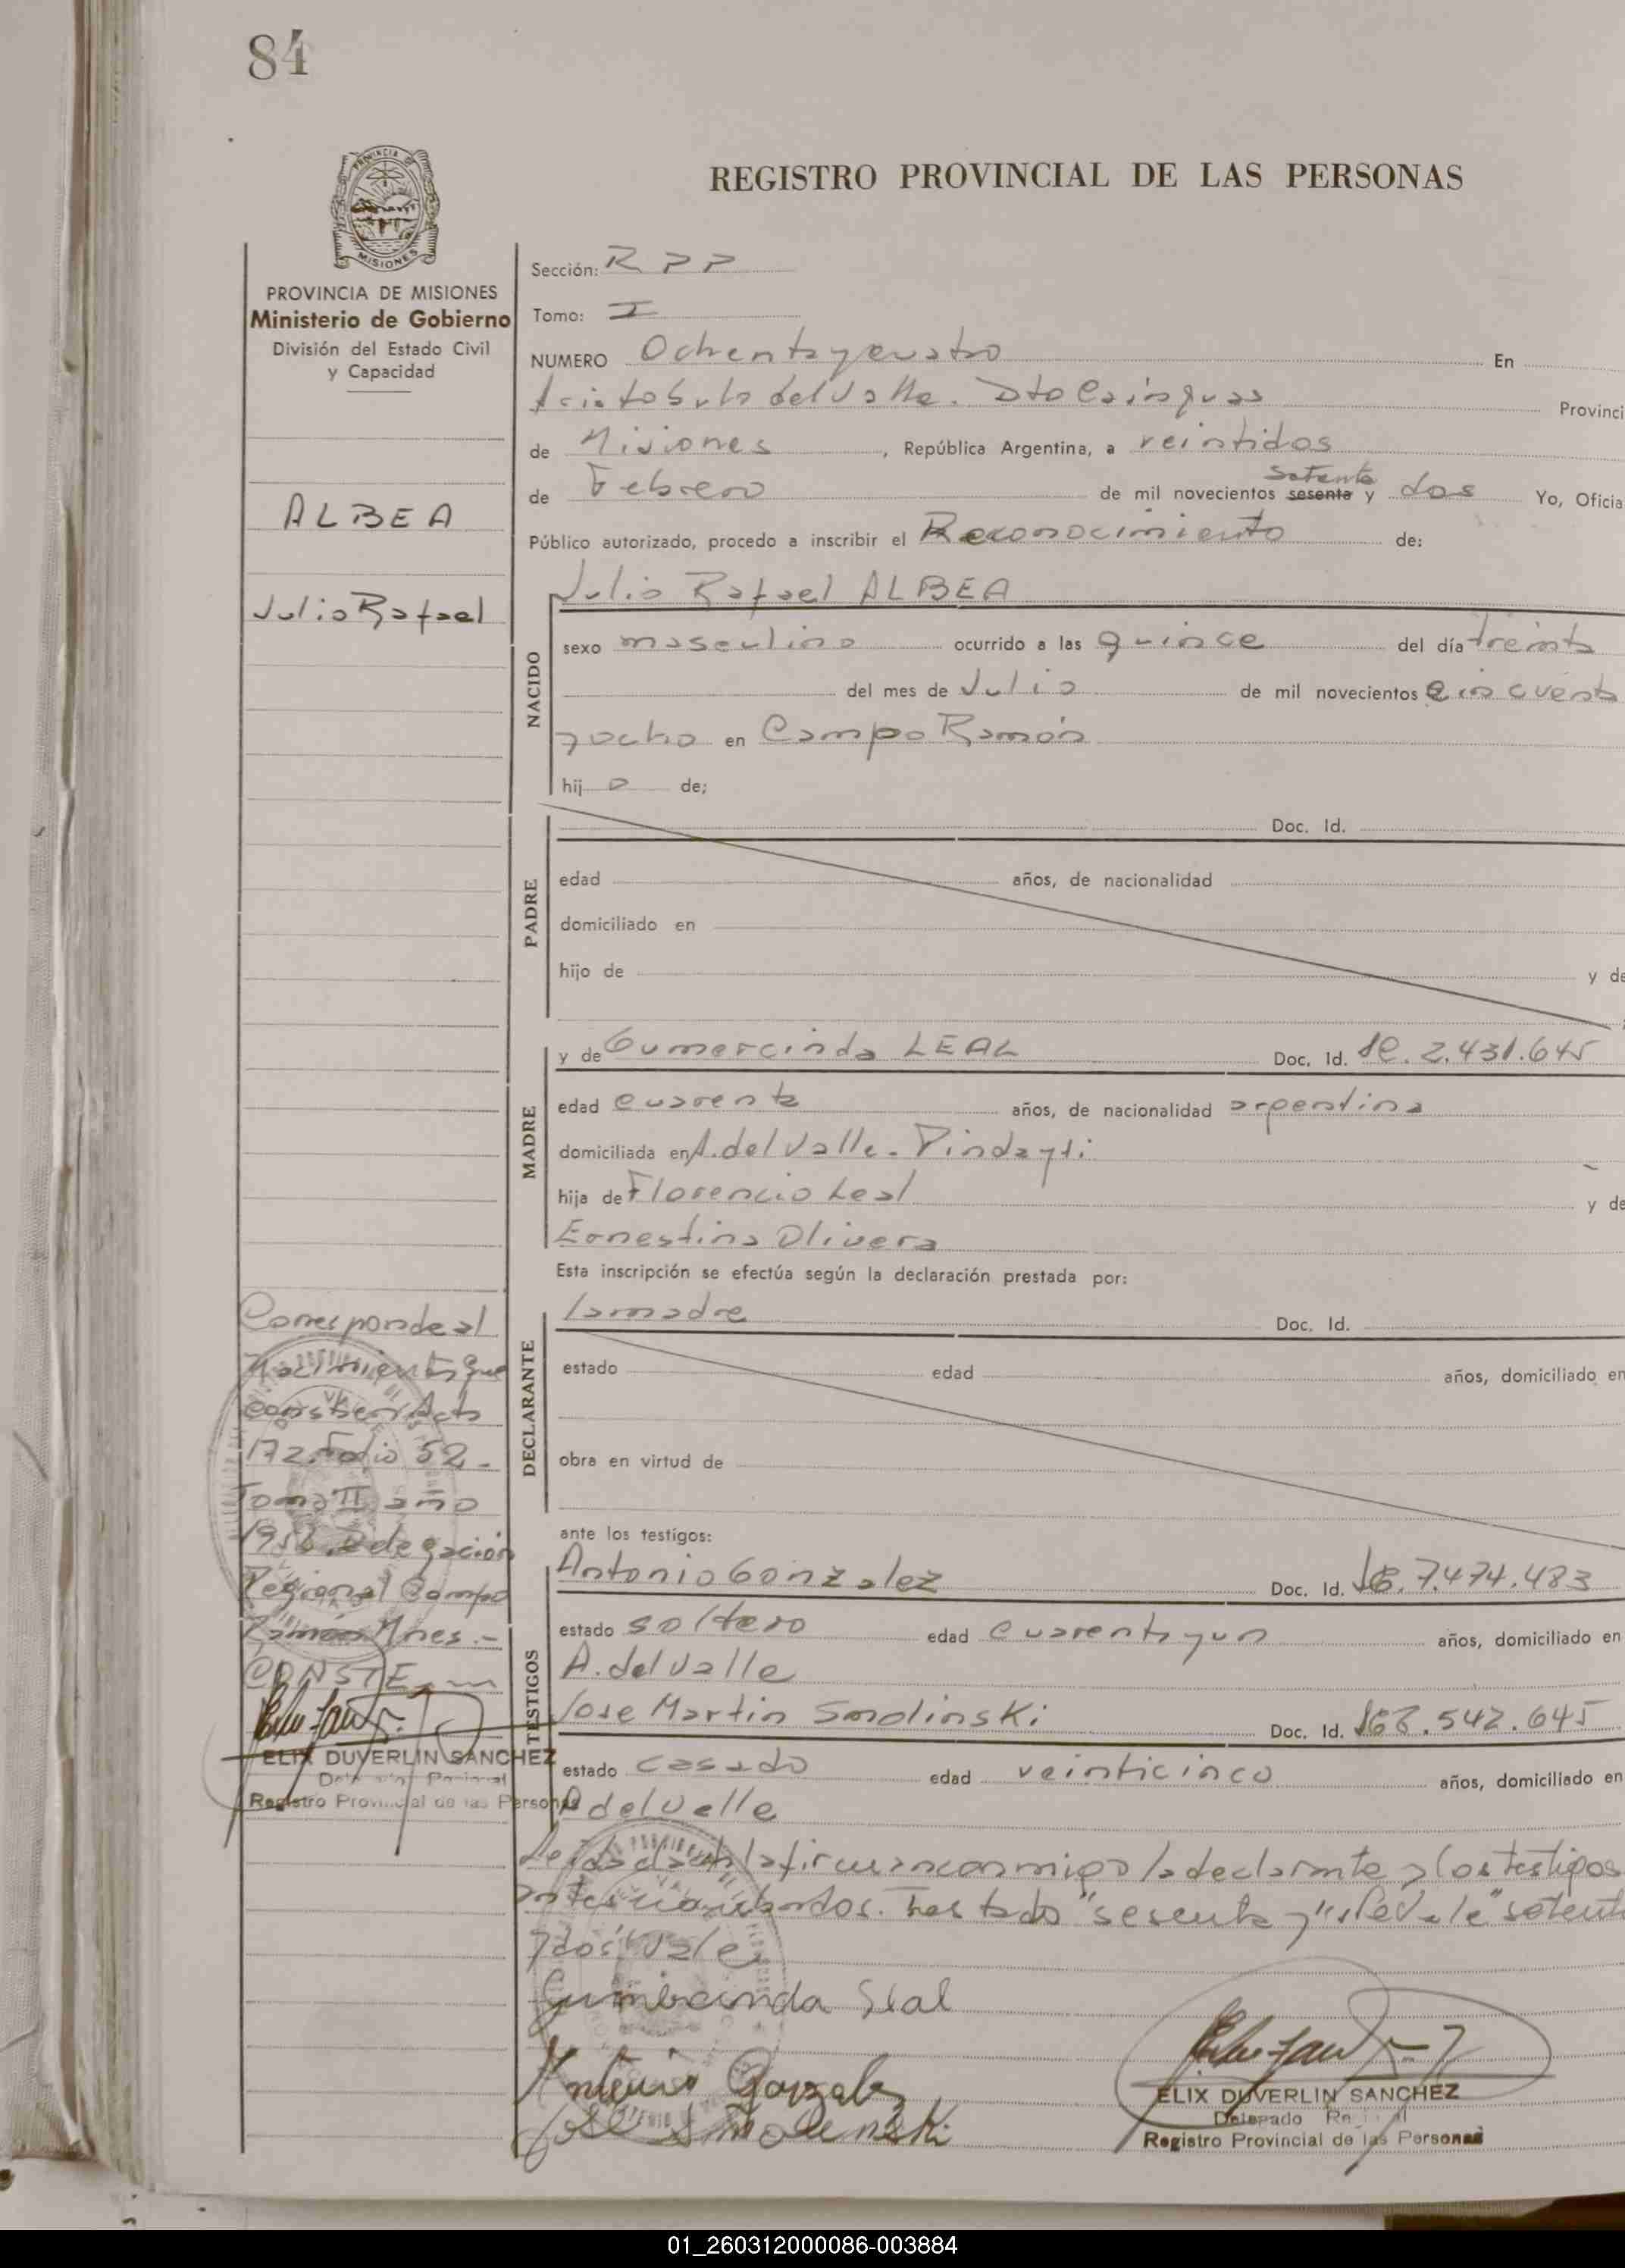 84
PROVINCIA DE
MISIONES
REGISTRO PROVINCIAL DE LAS PERSONAS
PROVINCIA DE MISIONES
Ministerio de Gobierno
División del Estado Civil
y Capacidad
ALBEA
Julio Rafael
Sección: R P P
Tomo: I
NUMERO Ochenta y cuatro En
Aristobulo del Valle. Dto Cainguas Provinci
de Misiones, República Argentina, a veintidos
de Febrero de mil novecientos sesenta setenta y dos Yo, Oficia
Público autorizado, procedo a inscribir el Reconocimiento de:
NACIDO
Julio Rafael ALBEA
sexo masculino ocurrido a las quince del día treinta
del mes de Julio de mil novecientos cincuenta
y ocho en Campo Ramón
hij o de;
PADRE
Doc. Id.
edad años, de nacionalidad
domiciliado en
hijo de y de
MADRE
y de Gumercinda LEAL Doc. Id. 2.431.645
edad cuarenta años, de nacionalidad argentina
domiciliada en A. del Valle - Pindayti
hija de Florencio Leal y de
Ernestina Olivera
Esta inscripción se efectúa según la declaración prestada por:
DECLARANTE
la madre Doc. Id.
estado edad años, domiciliado en
obra en virtud de
ante los testigos:
TESTIGOS
Antonio Gonzalez Doc. Id. 7.474.483
estado soltero edad cuarenta y un años, domiciliado en
A. del Valle
Jose Martin Smolinski Doc. Id. 8.542.645
estado casado edad veinticinco años, domiciliado en
A del Valle
Leida el acta la firman conmigo la declarante y los testigos
Testado "sesenta y" "setent
y dos" vale
Gumercinda Leal
Antonio Gonzalez
Jose Smolinski
Corresponde al
Nacimiento que
consta en Acta
172 Folio 52 -
Tomo II año
1958 Delegación
Regional Campo
Ramón Mnes. -
CONSTE
ELIX DUVERLIN SANCHEZ
Registro Provincial de las Personas
ELIX DUVERLIN SANCHEZ
Delegado
Registro Provincial de las Personas
01_260312000086-003884